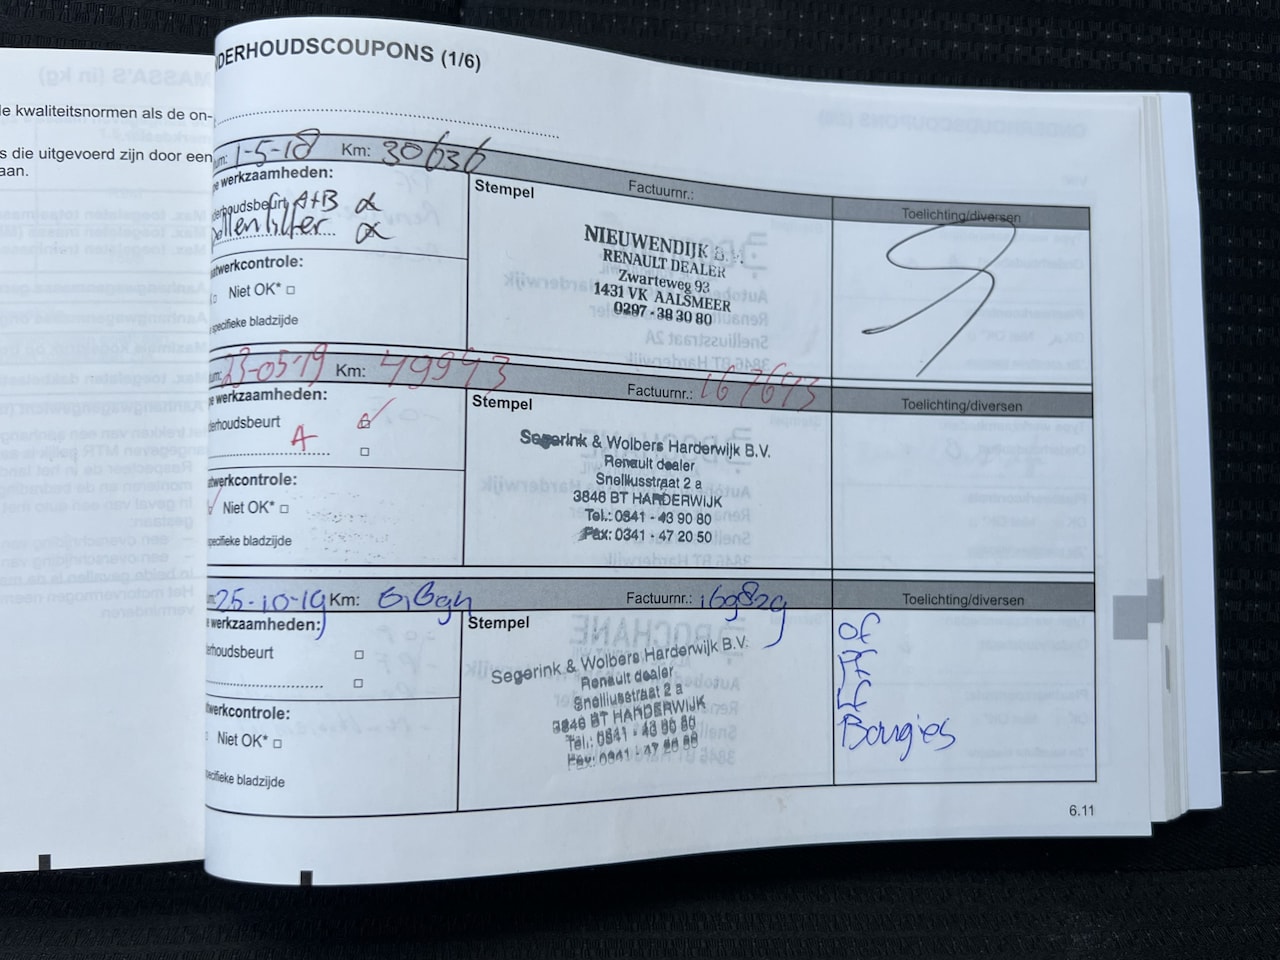 le kwaliteitsnormen als de on-
s die uitgevoerd zijn door een
aan.
NDERHOUDSCOUPONS (1/6)
1-5-18 Km: 30636
Factuurnr.:
werkzaamheden:
Stempel
Toelichting/diversen
derhoudsbeurt A+B
Pollenfilter
NIEUWENDIJK B.V.
RENAULT DEALER
Zwarteweg 93
1431 VK AALSMEER
0297 - 38 30 80
atwerkcontrole:
Niet OK* □
specifieke bladzijde
23-05-19 Km: 49943
Factuurnr.: 167693
werkzaamheden:
Stempel
Toelichting/diversen
derhoudsbeurt
A
Segerink & Wolbers Harderwijk B.V.
Renault dealer
Snelliusstraat 2 a
3846 BT HARDERWIJK
Tel.: 0341 - 43 90 80
Fax: 0341 - 47 20 50
atwerkcontrole:
Niet OK* □
specifieke bladzijde
25-10-19 Km:
Factuurnr.: 169829
werkzaamheden:
Stempel
Toelichting/diversen
erhoudsbeurt
Segerink & Wolbers Harderwijk B.V.
Renault dealer
Snelliusstraat 2 a
3846 BT HARDERWIJK
of
Pf
Lf
Bougies
twerkcontrole:
Niet OK* □
specifieke bladzijde
6.11